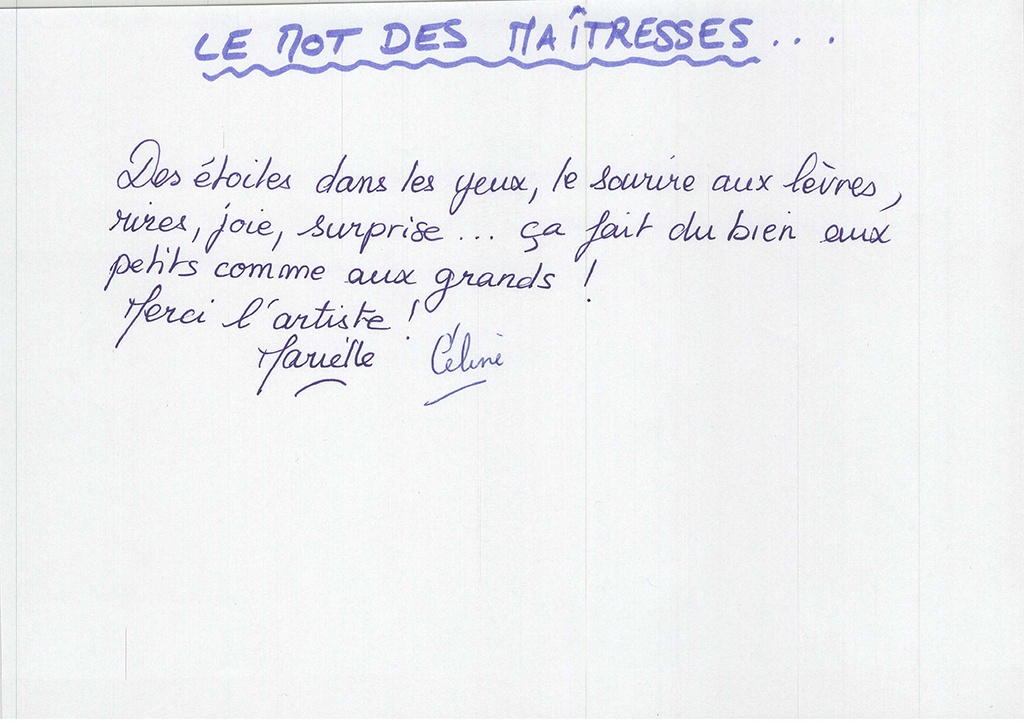 LE MOT DES MAÎTRESSES...
Des étoiles dans les yeux, le sourire aux lèvres,
rires, joie, surprise... ça fait du bien aux
petits comme aux grands !
Merci l'artiste !
Mariélle Céline